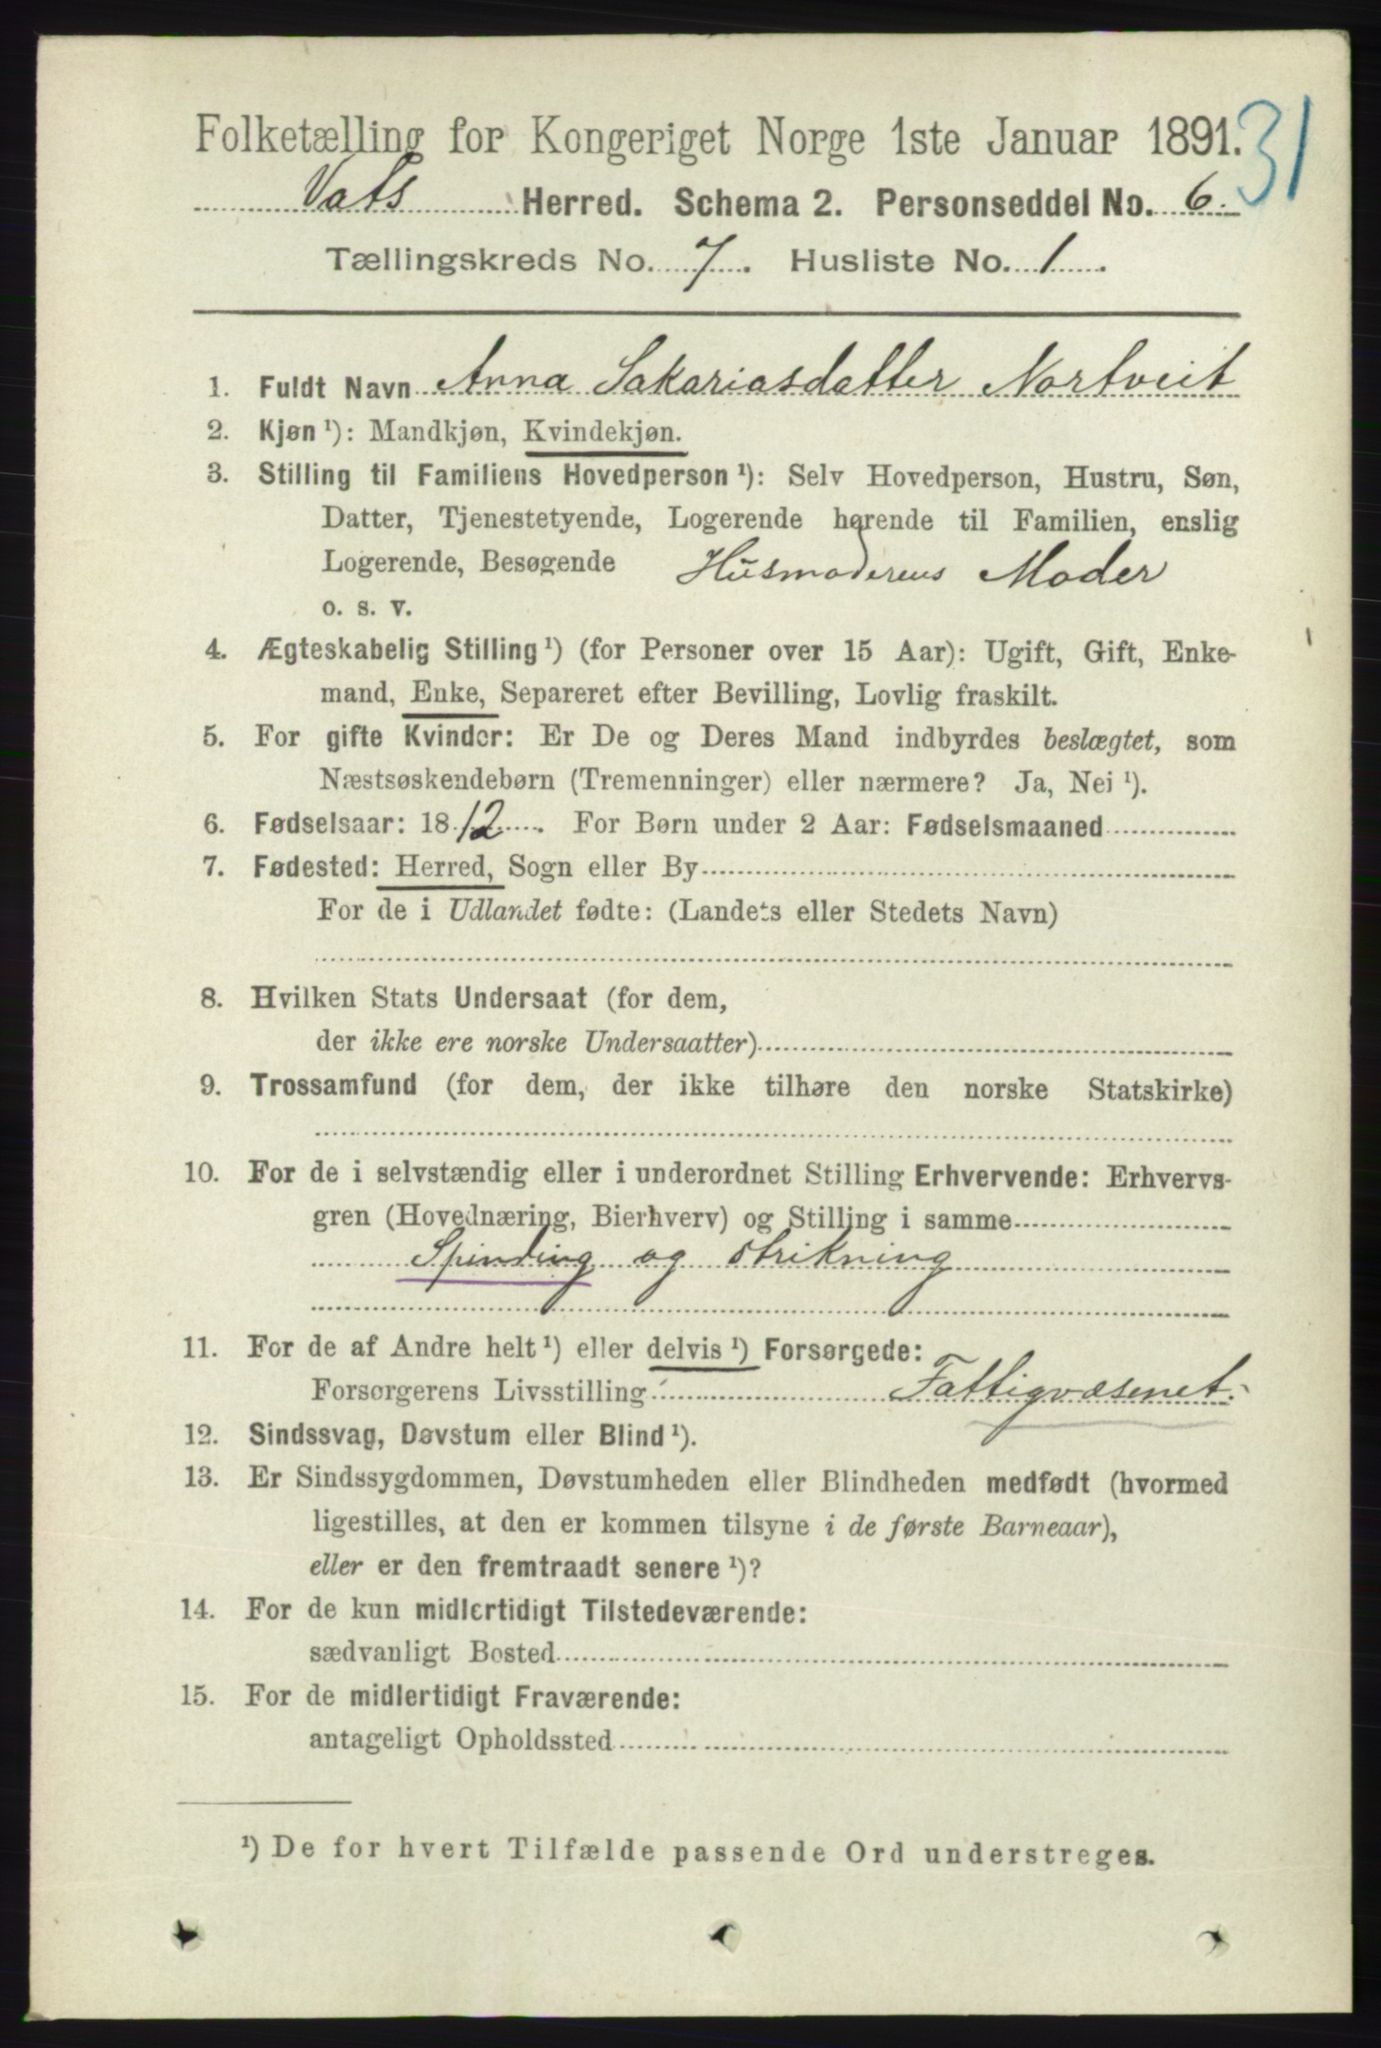 31
Folketælling for Kongeriget Norge 1ste Januar 1891.
Vats Herred. Schema 2. Personseddel No. 6.
Tællingskreds No. 7. Husliste No. 1.
1. Fuldt Navn Anna Sakariasdatter Nortveit
2. Kjøn ¹): Mandkjøn, Kvindekjøn.
3. Stilling til Familiens Hovedperson ¹): Selv Hovedperson, Hustru, Søn,
Datter, Tjenestetyende, Logerende hørende til Familien, enslig
Logerende, Besøgende Husmoderens Moder
o. s. v.
4. Ægteskabelig Stilling ¹) (for Personer over 15 Aar): Ugift, Gift, Enke-
mand, Enke, Separeret efter Bevilling, Lovlig fraskilt.
5. For gifte Kvinder: Er De og Deres Mand indbyrdes beslægtet, som
Næstsøskendebørn (Tremenninger) eller nærmere? Ja, Nei ¹).
6. Fødselsaar: 1812. For Børn under 2 Aar: Fødselsmaaned
7. Fødested: Herred, Sogn eller By
For de i Udlandet fødte: (Landets eller Stedets Navn)
8. Hvilken Stats Undersaat (for dem,
der ikke ere norske Undersaatter)
9. Trossamfund (for dem, der ikke tilhøre den norske Statskirke)
10. For de i selvstændig eller i underordnet Stilling Erhvervende: Erhvervs-
gren (Hovednæring, Bierhverv) og Stilling i samme
Spinding og strikning
11. For de af Andre helt ¹) eller delvis ¹) Forsørgede:
Forsørgerens Livsstilling Fattigvæsenet.
12. Sindssvag, Døvstum eller Blind ¹).
13. Er Sindssygdommen, Døvstumheden eller Blindheden medfødt (hvormed
ligestilles, at den er kommen tilsyne i de første Barneaar),
eller er den fremtraadt senere ¹)?
14. For de kun midlertidigt Tilstedeværende:
sædvanligt Bosted
15. For de midlertidigt Fraværende:
antageligt Opholdssted
¹) De for hvert Tilfælde passende Ord understreges.